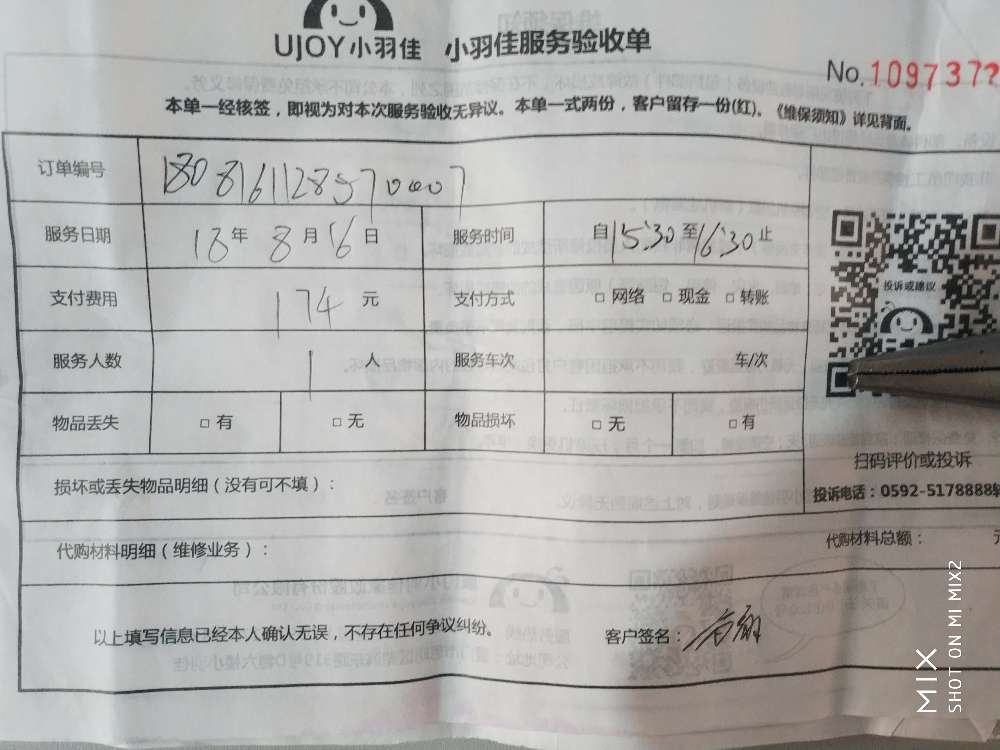 UJOY小羽佳 小羽佳服务验收单
No.1097372
本单一经核签，即视为对本次服务验收无异议。本单一式两份，客户留存一份(红)。《维保须知》详见背面。
订单编号 1808161128570007
服务日期 18年 8月 16日 服务时间 自15:30至16:30止
支付费用 174 元 支付方式 □ 网络 □ 现金 □ 转账
服务人数 1 人 服务车次 车/次
物品丢失 □ 有 □ 无 物品损坏 □ 无 □ 有
投诉或建议
扫码评价或投诉
投诉电话：0592-5178888转
损坏或丢失物品明细（没有可不填）：
代购材料明细（维修业务）： 代购材料总额： 元
以上填写信息已经本人确认无误，不存在任何争议纠纷。 客户签名：
MIX
SHOT ON MI MIX2